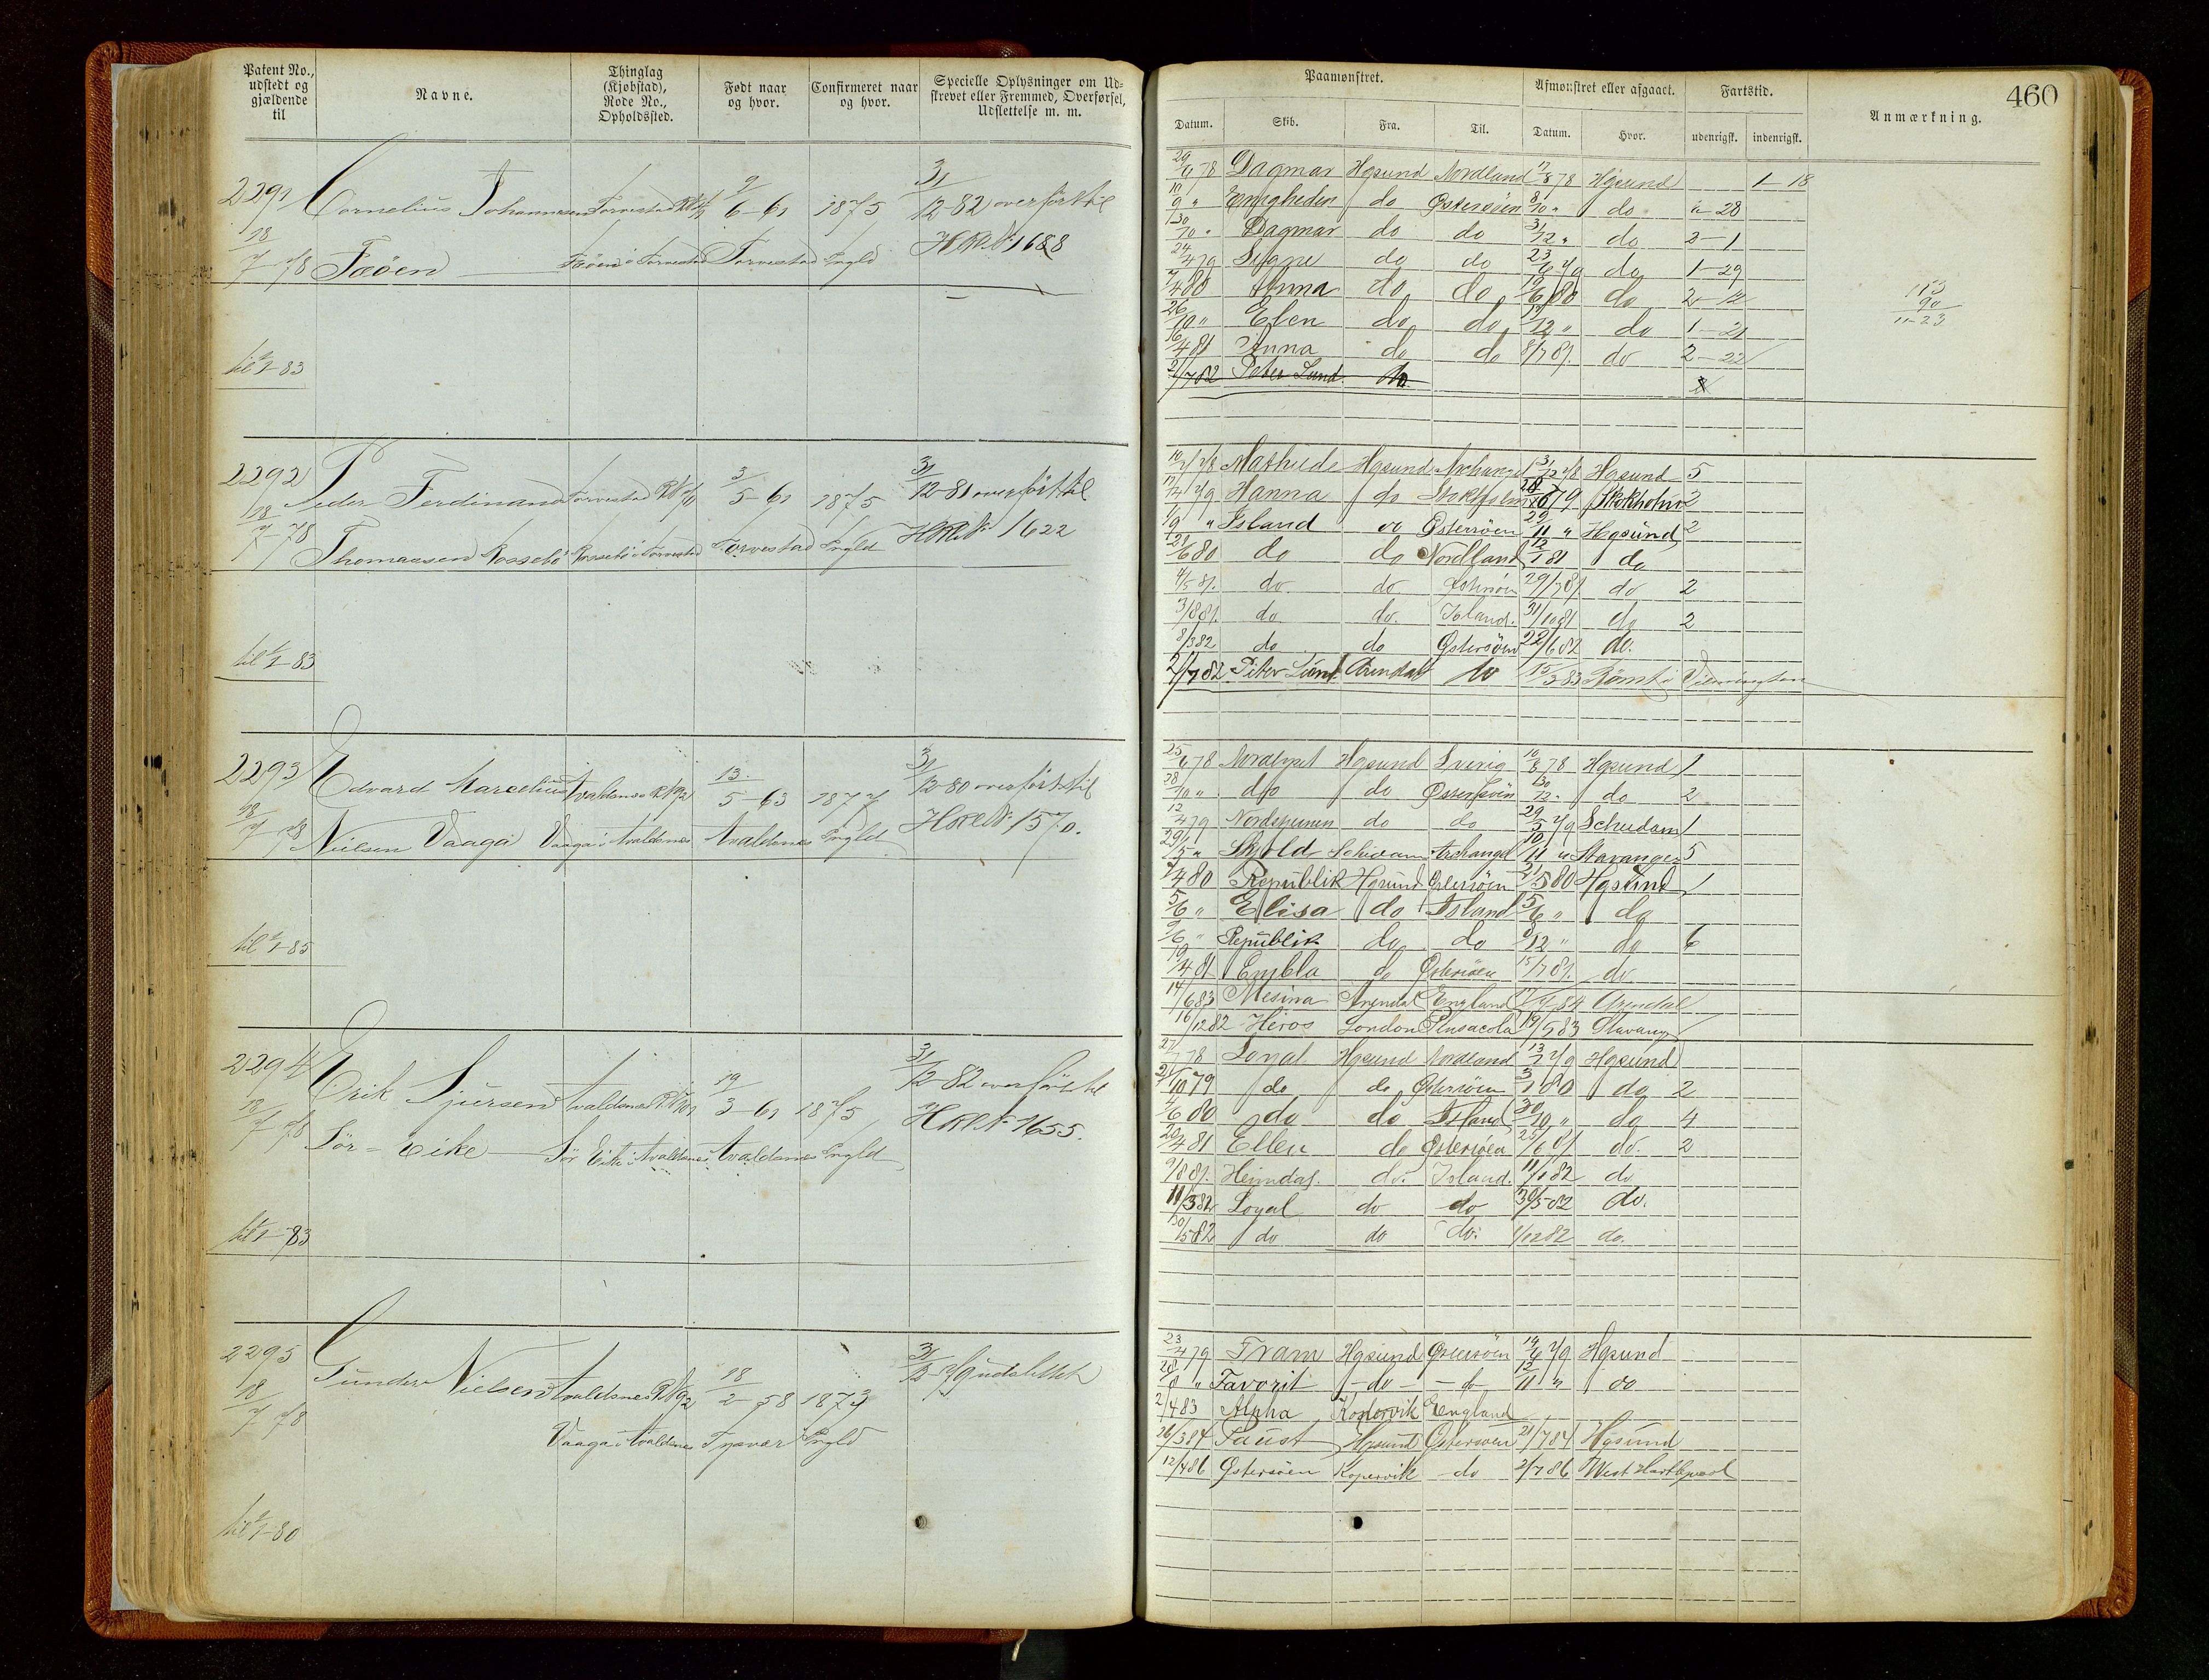 Patent No., udstedt og gjældende til
Navne.
Thinglag (Kjøbstad), Rode No., Opholdssted.
Født naar og hvor.
Confirmeret naar og hvor.
Specielle Oplysninger om Udskrevet eller Fremmed, Overførsel, Udslettelse m. m.
2291 Cornelius Johannesen Torvestad 9/6-61 1875 31/12-82 overført til
18/7-78 Føøen Torvestad Torvestad Ingld No 1688
til 1/1-83
2292 Peder Ferdinand Torvestad 3/5-61 1875 31/12-81 overført til
18/7-78 Thomassen Rossebö Rossebö i Torvestad Torvestad Ingld No 1622
til 1/1-83
2293 Edvard Marcelius Avaldsnes 13/5-63 1877 31/12-80 overført til
18/7-78 Nielsen Vaaga Vaaga i Avaldsnes Avaldsnes Ingld No 1570.
til 1/1-85
2294 Erik Sjursen Avaldsnes 19/3-61 1875 31/12-82 overført til
18/7-78 Sör-Eike Sör Eike i Avaldsnes Avaldsnes Ingld No 1655.
til 1/1-83
2295 Gunder Nielsen Avaldsnes 18/2-58 1874 31/12-79 udslettet
18/7-78 Vaaga i Avaldsnes Tysvær Ingld
til 1/1-80
460
Paamønstret.
Afmønstret eller afgaaet.
Fartstid.
Anmærkning.
Datum. Skib. Fra. Til. Datum. Hvor. udenrigsk. indenrigsk.
29/6 78 Dagmar Hgsund Nordland 17/8 78 Hgsund 1-18
10/9 " Enigheden do Østersøen 8/10 " do "-28
30/10 " Dagmar do do 31/12 " do 2-1
24/4 79 Signe do do 23/6 79 do 1-29
7/4 80 Anna do do 19/6 80 do 2-12
26/10 " Elen do do 17/12 " do 1-21
16/4 81 Anna do do 8/7 81. do 2-22
2/7 82 Peter Lund do
113
90
11-23
10/7 78 Mathilde Hgsund Archangel 31/12 78 Hgsund 5
17/4 79 Hanna do Stokholm 79 Stokholm 2
1/9 " Island do Østersøen 29/11 " Hgsund 2
21/6 80 do do Nordland 12/1 81 do
4/5 81. do. do. Østersöen 29/7 81 do 2
3/8 81. do do. Island. 31/10 81 do 2
8/3 82 do do Østersöen 22/6 82 do.
2/7 82 Peter Lund Arendal 15/3 83
25/6 78 Nordlyset Hgsund Sverig 10/8 78 Hgsund 1
28/10 " do do Østersøen 30/12 " do 2
12/4 79 Nordstjernen do do 29/5 79 Schiedam 1
29/5 " Skjold Schiedam Archangel 10/11 " Stavanger 5
7/4 80 Republik Hgsund Østersöen 21/5 80 Hgsund 1
5/6 " Elisa do Island 5/6 " do
9/6 " Republik do do 9/12 " do 6
10/4 81 Embla do Østersöen 15/7 81. do
14/6 83 Mesina Arendal England 17/9 84 Arendal
16/12 82 Heros London Pensacola 19/5 83 Stavanger
27/7 78 Loyal Hgsund Nordland 13/1 79 Hgsund
21/10 79 do do Østersöen 3/1 80 do 2
4/6 80 do do Island 30/10 " do 4
20/4 81 Ellen do Østersöen 25/6 81 do. 2
9/8 81. Heimdal. do. Island. 11/1 82 do
11/3 82 Loyal do do 30/5-82 do.
30/5 82 do do do. 1/12 82 do.
23/4 79 Fram Hgsund Østersöen 14/6 79 Hgsund
28/8 " Favorit -do- -do- 12/11 " do
2/4 83 Alpha Kopervik England
26/3 84 Faust Hgsund Østersøen 21/7 84 Hgsund
12/4 86 Østersöen Kopervik -do 2/7 86 West Hartlepool